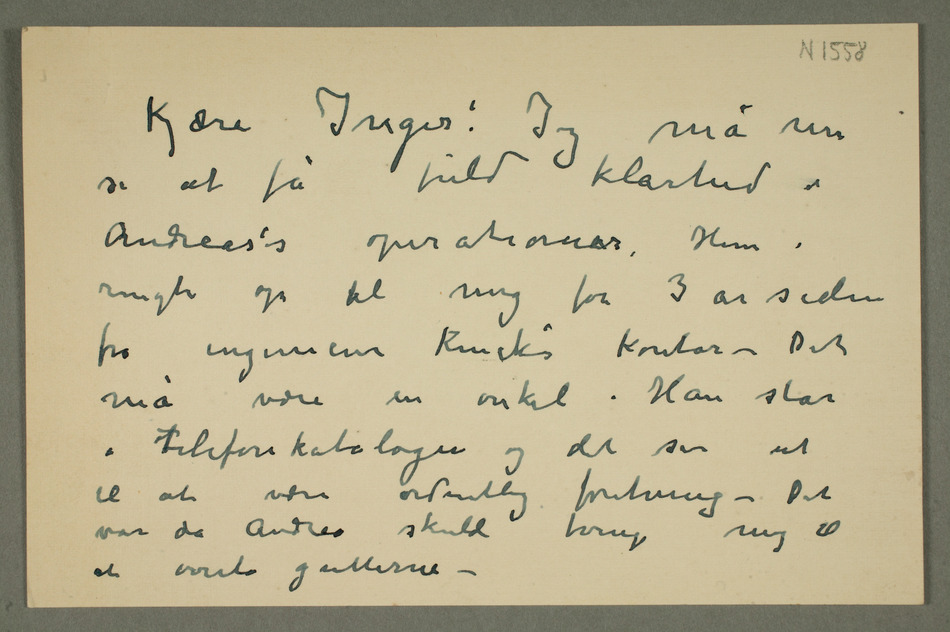 N 1558
Kjære Inger! Jeg må nu
se at få fuld klarhed i
Andreas's operationer. Hun
ringte op til mig for 3 år siden
fra ingeniøren Kincks Kontor – Det
må være en onkel. Han står
i Telefonkatalogen og det ser ut
til at være ordentlig forretning – Det
var da Andrea skulde tvinge mig til
at guttene –